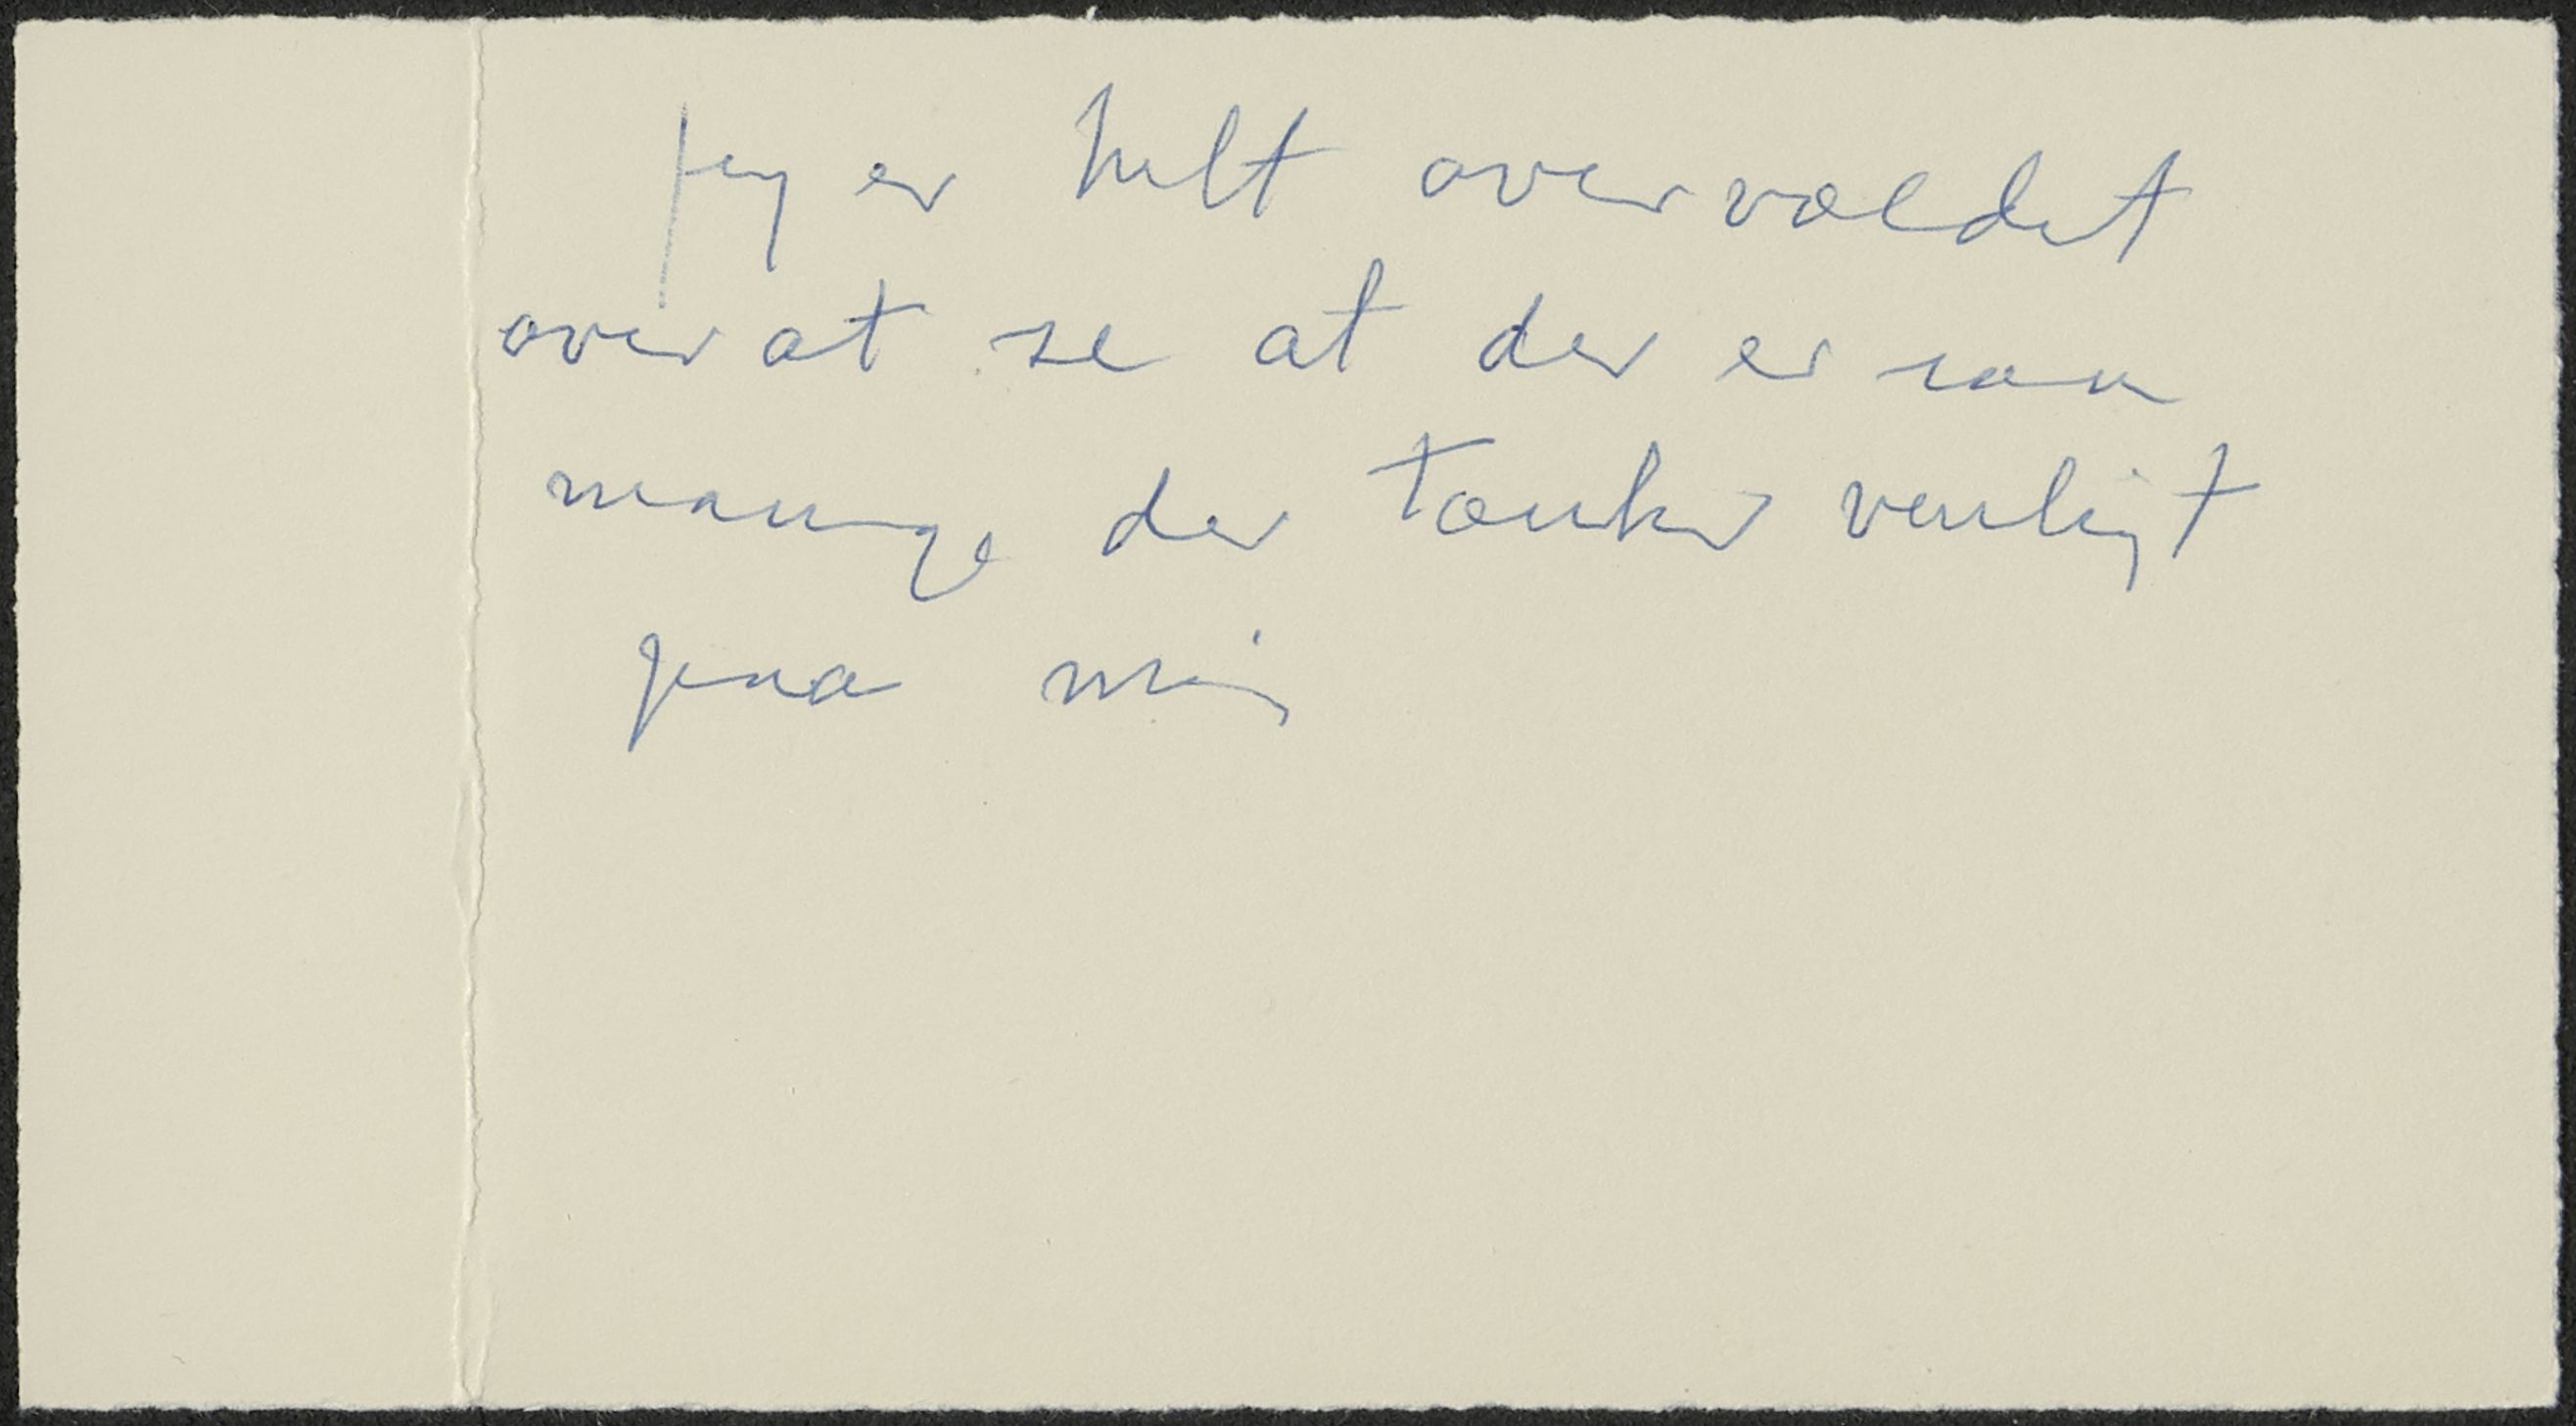 Jeg er helt overvældet
over at se at der er saa
mange der tænker venligt
paa mig